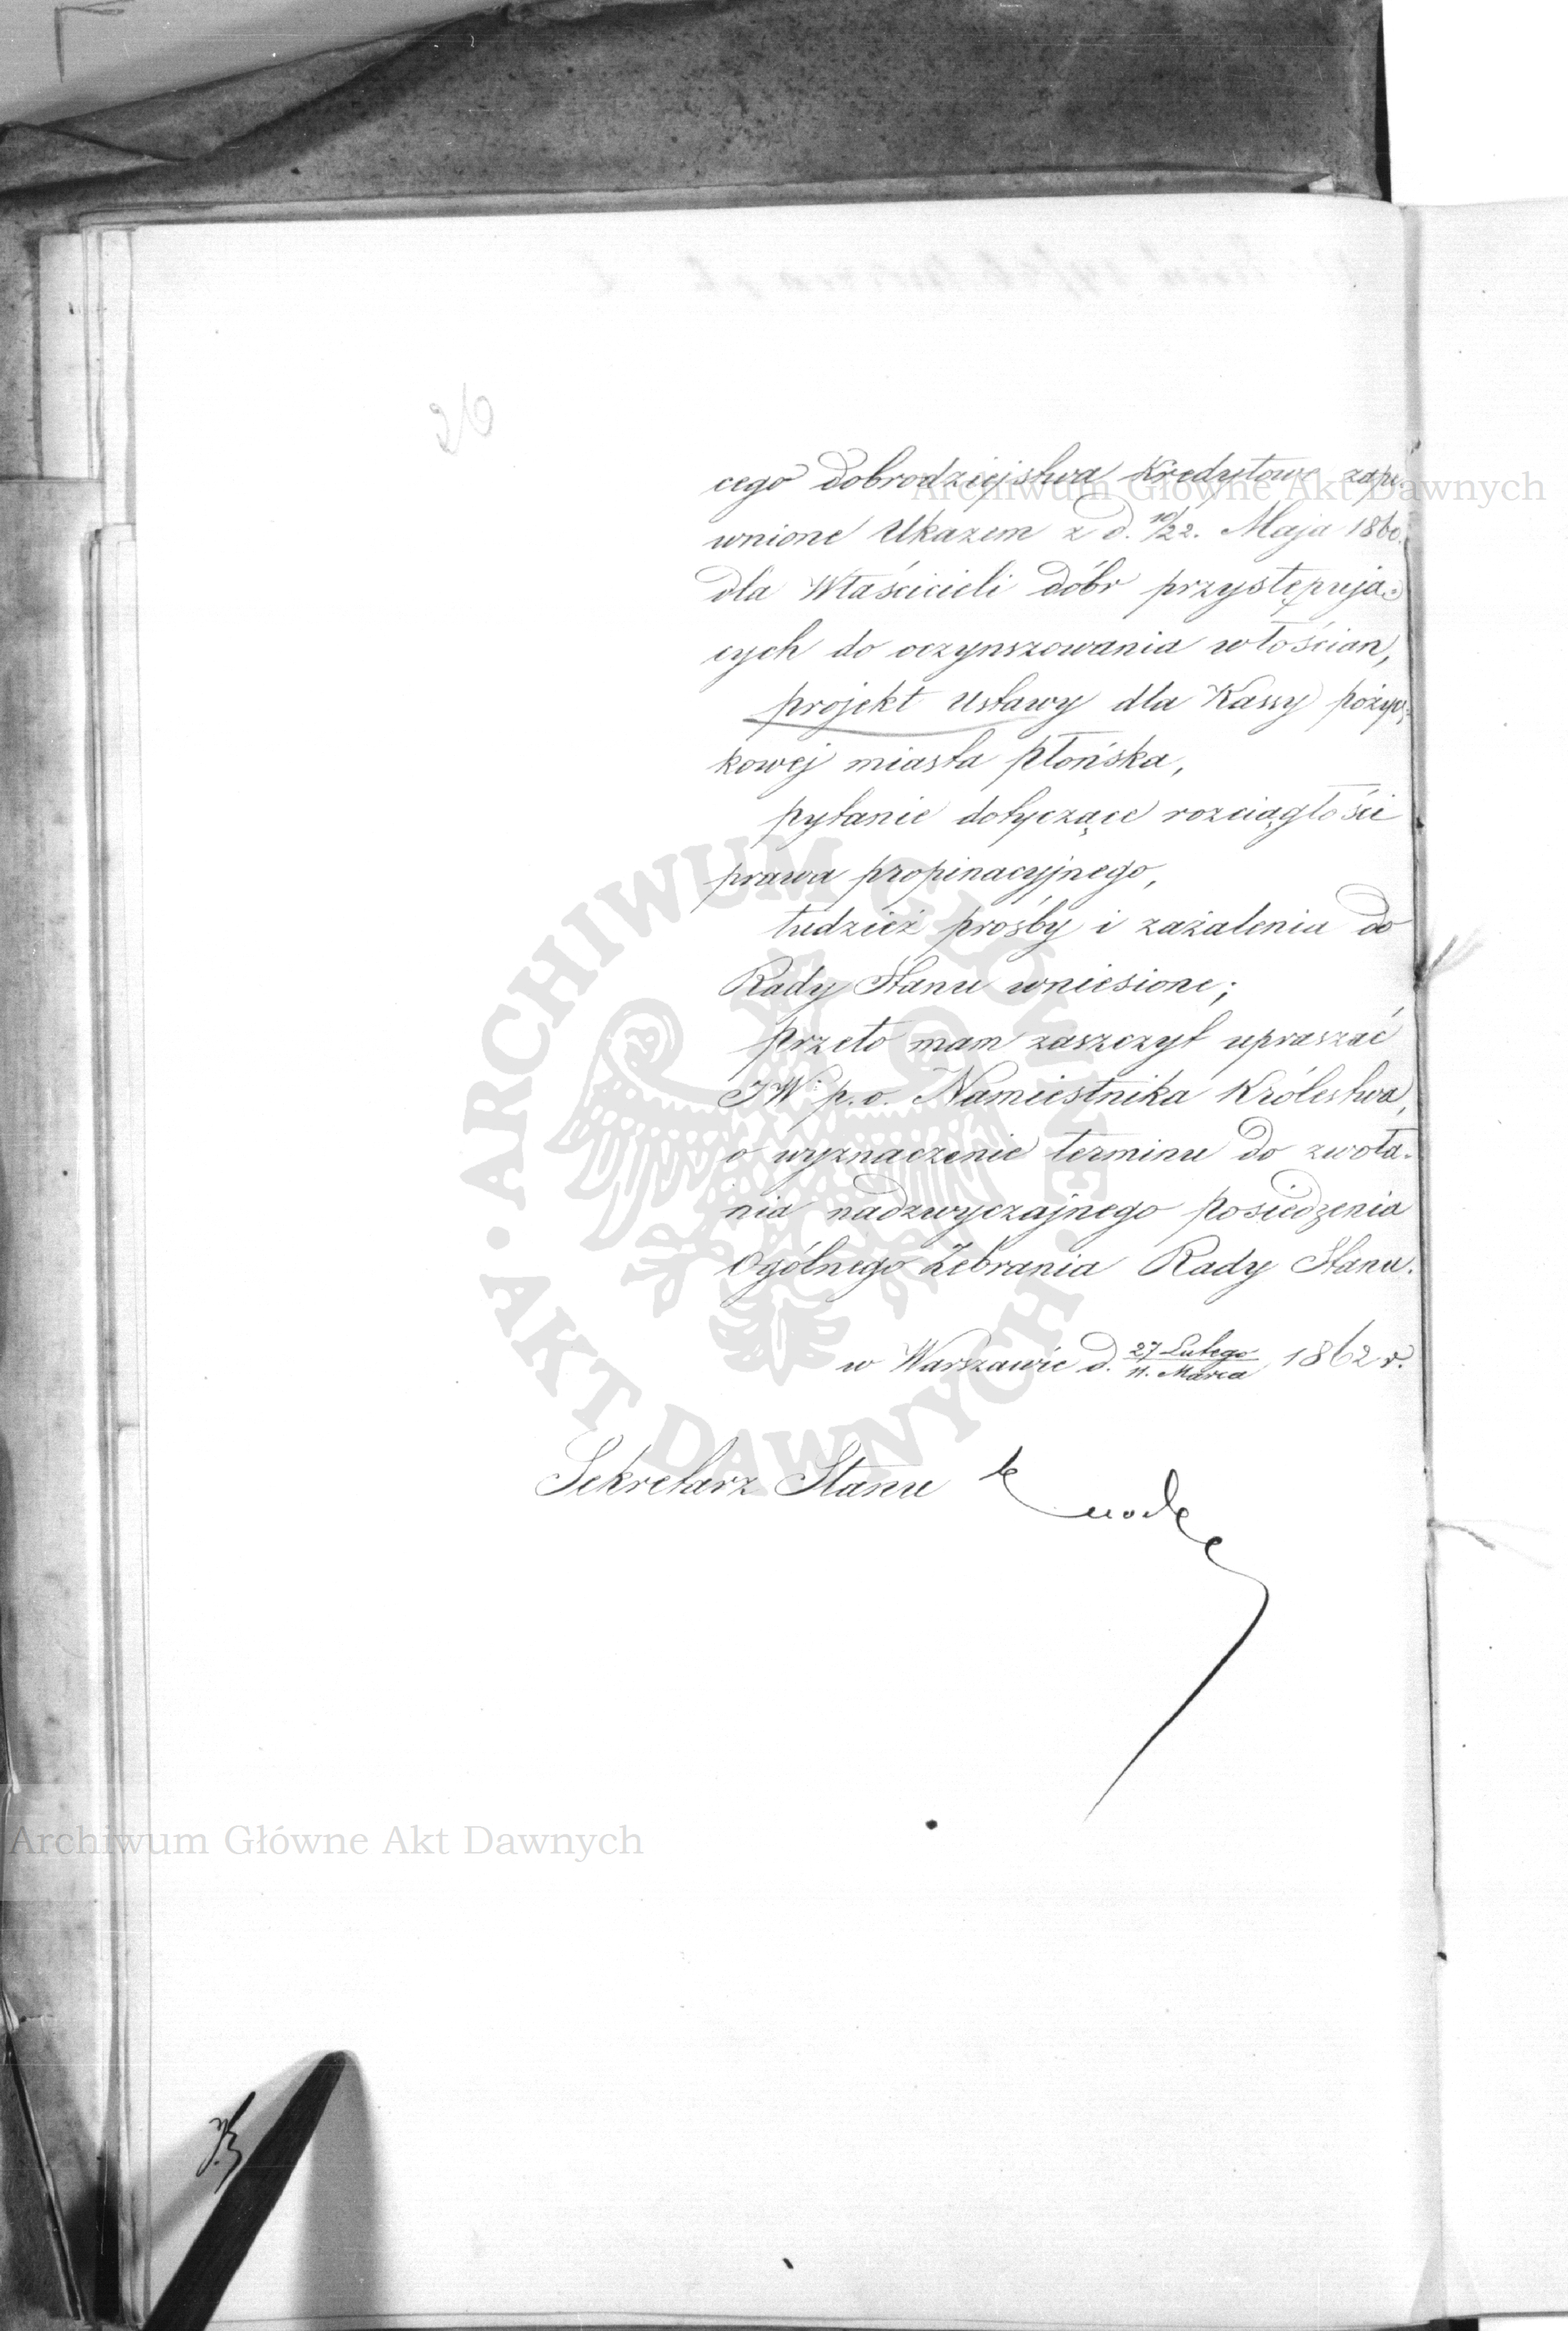 cego dobrodziejstwa kredytowe zape-
wnione Ukazem z d. 10/22. Maja 1860.
dla Właścicieli dóbr przystępują-
cych do oczynszowania włościan,
projekt Ustawy dla Kassy pożycz-
kowej miasta Płońska,
pytanie dotyczące rozciągłości
prawa propinacyjnego,
tudzież prośby i zażalenia do
Rady Stanu wniesione;
przeto mam zaszczyt upraszać
JW: p. o. Namiestnika Królestwa,
o wyznaczenie terminu do zwoła-
nia nadzwyczajnego posiedzenia
Ogólnego Zebrania Rady Stanu.
w Warszawie d. 27 Lutego / 11. Marca 1862 r.
Sekretarz Stanu
Archiwum Główne Akt Dawnych
ARCHIWUM GŁÓWNE AKT DAWNYCH
Archiwum Główne Akt Dawnych